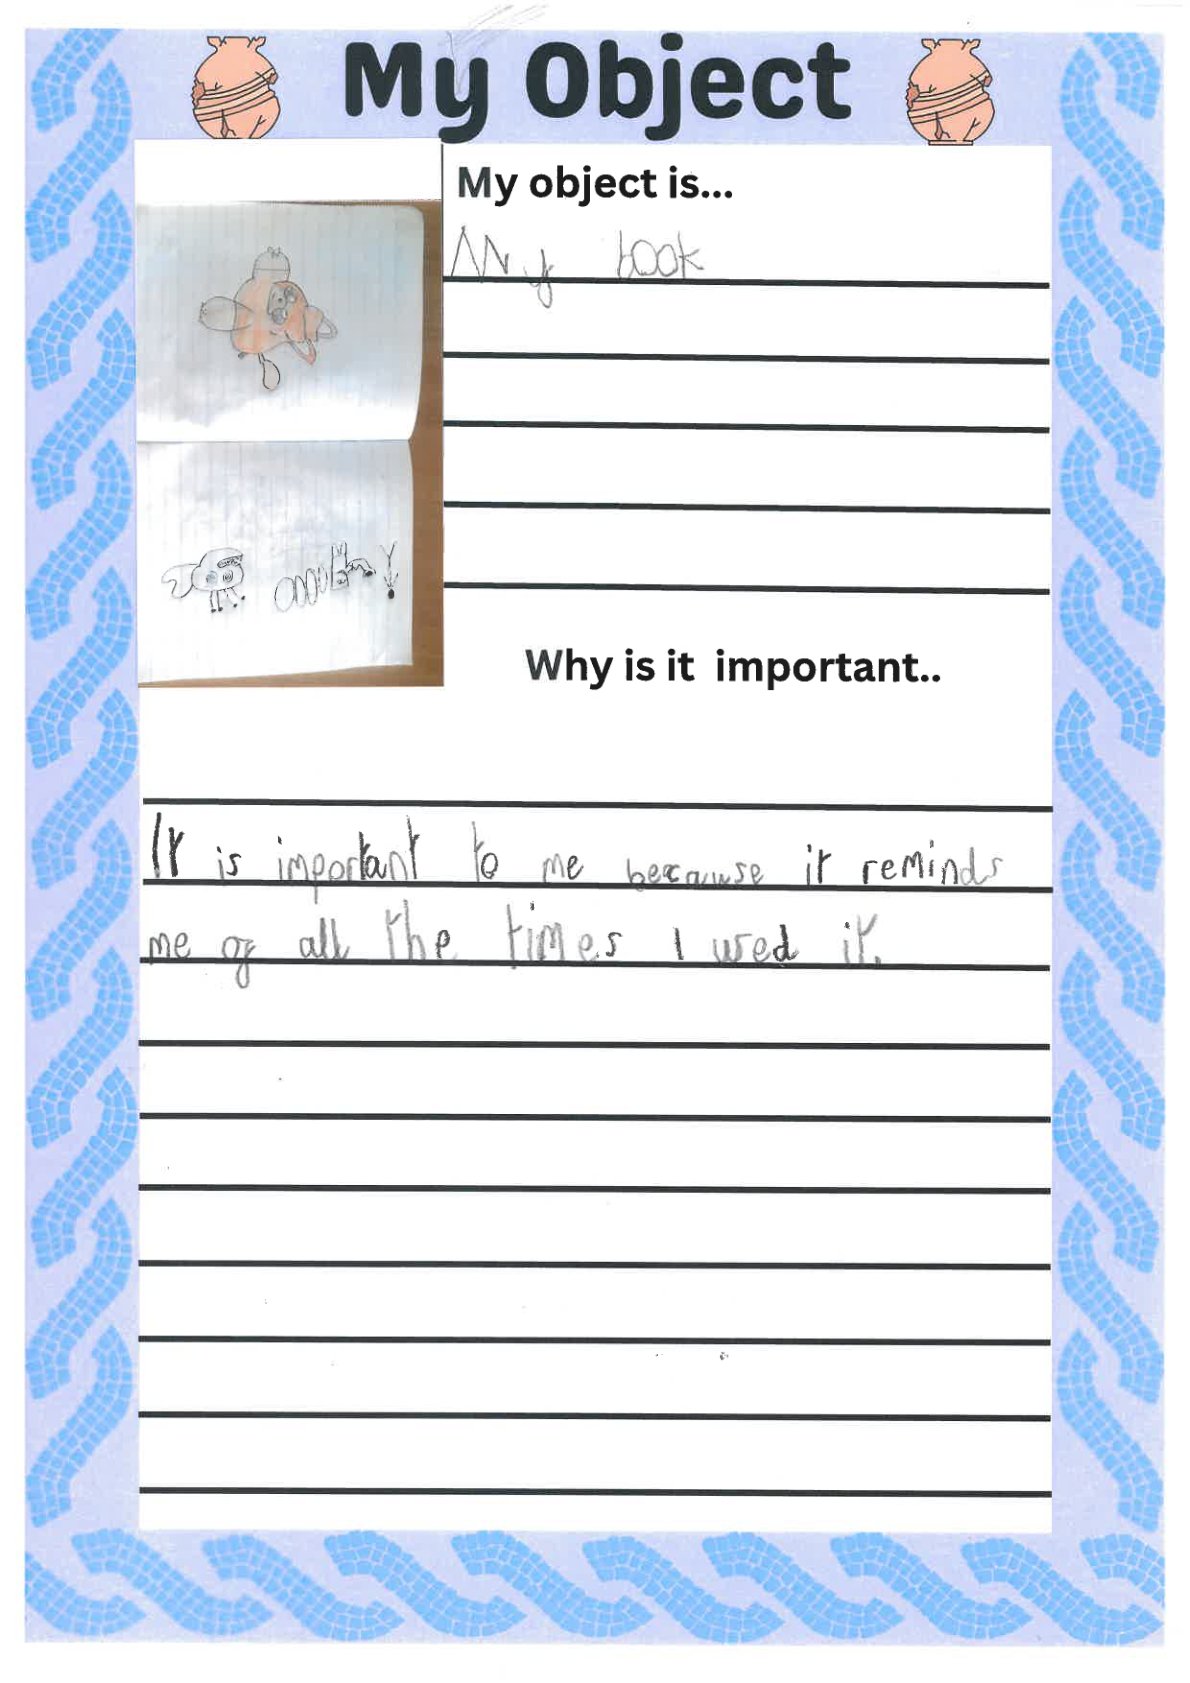 My Object
My object is...
My book
Why is it important..
It is important to me because it reminds
me of all the times I used it.